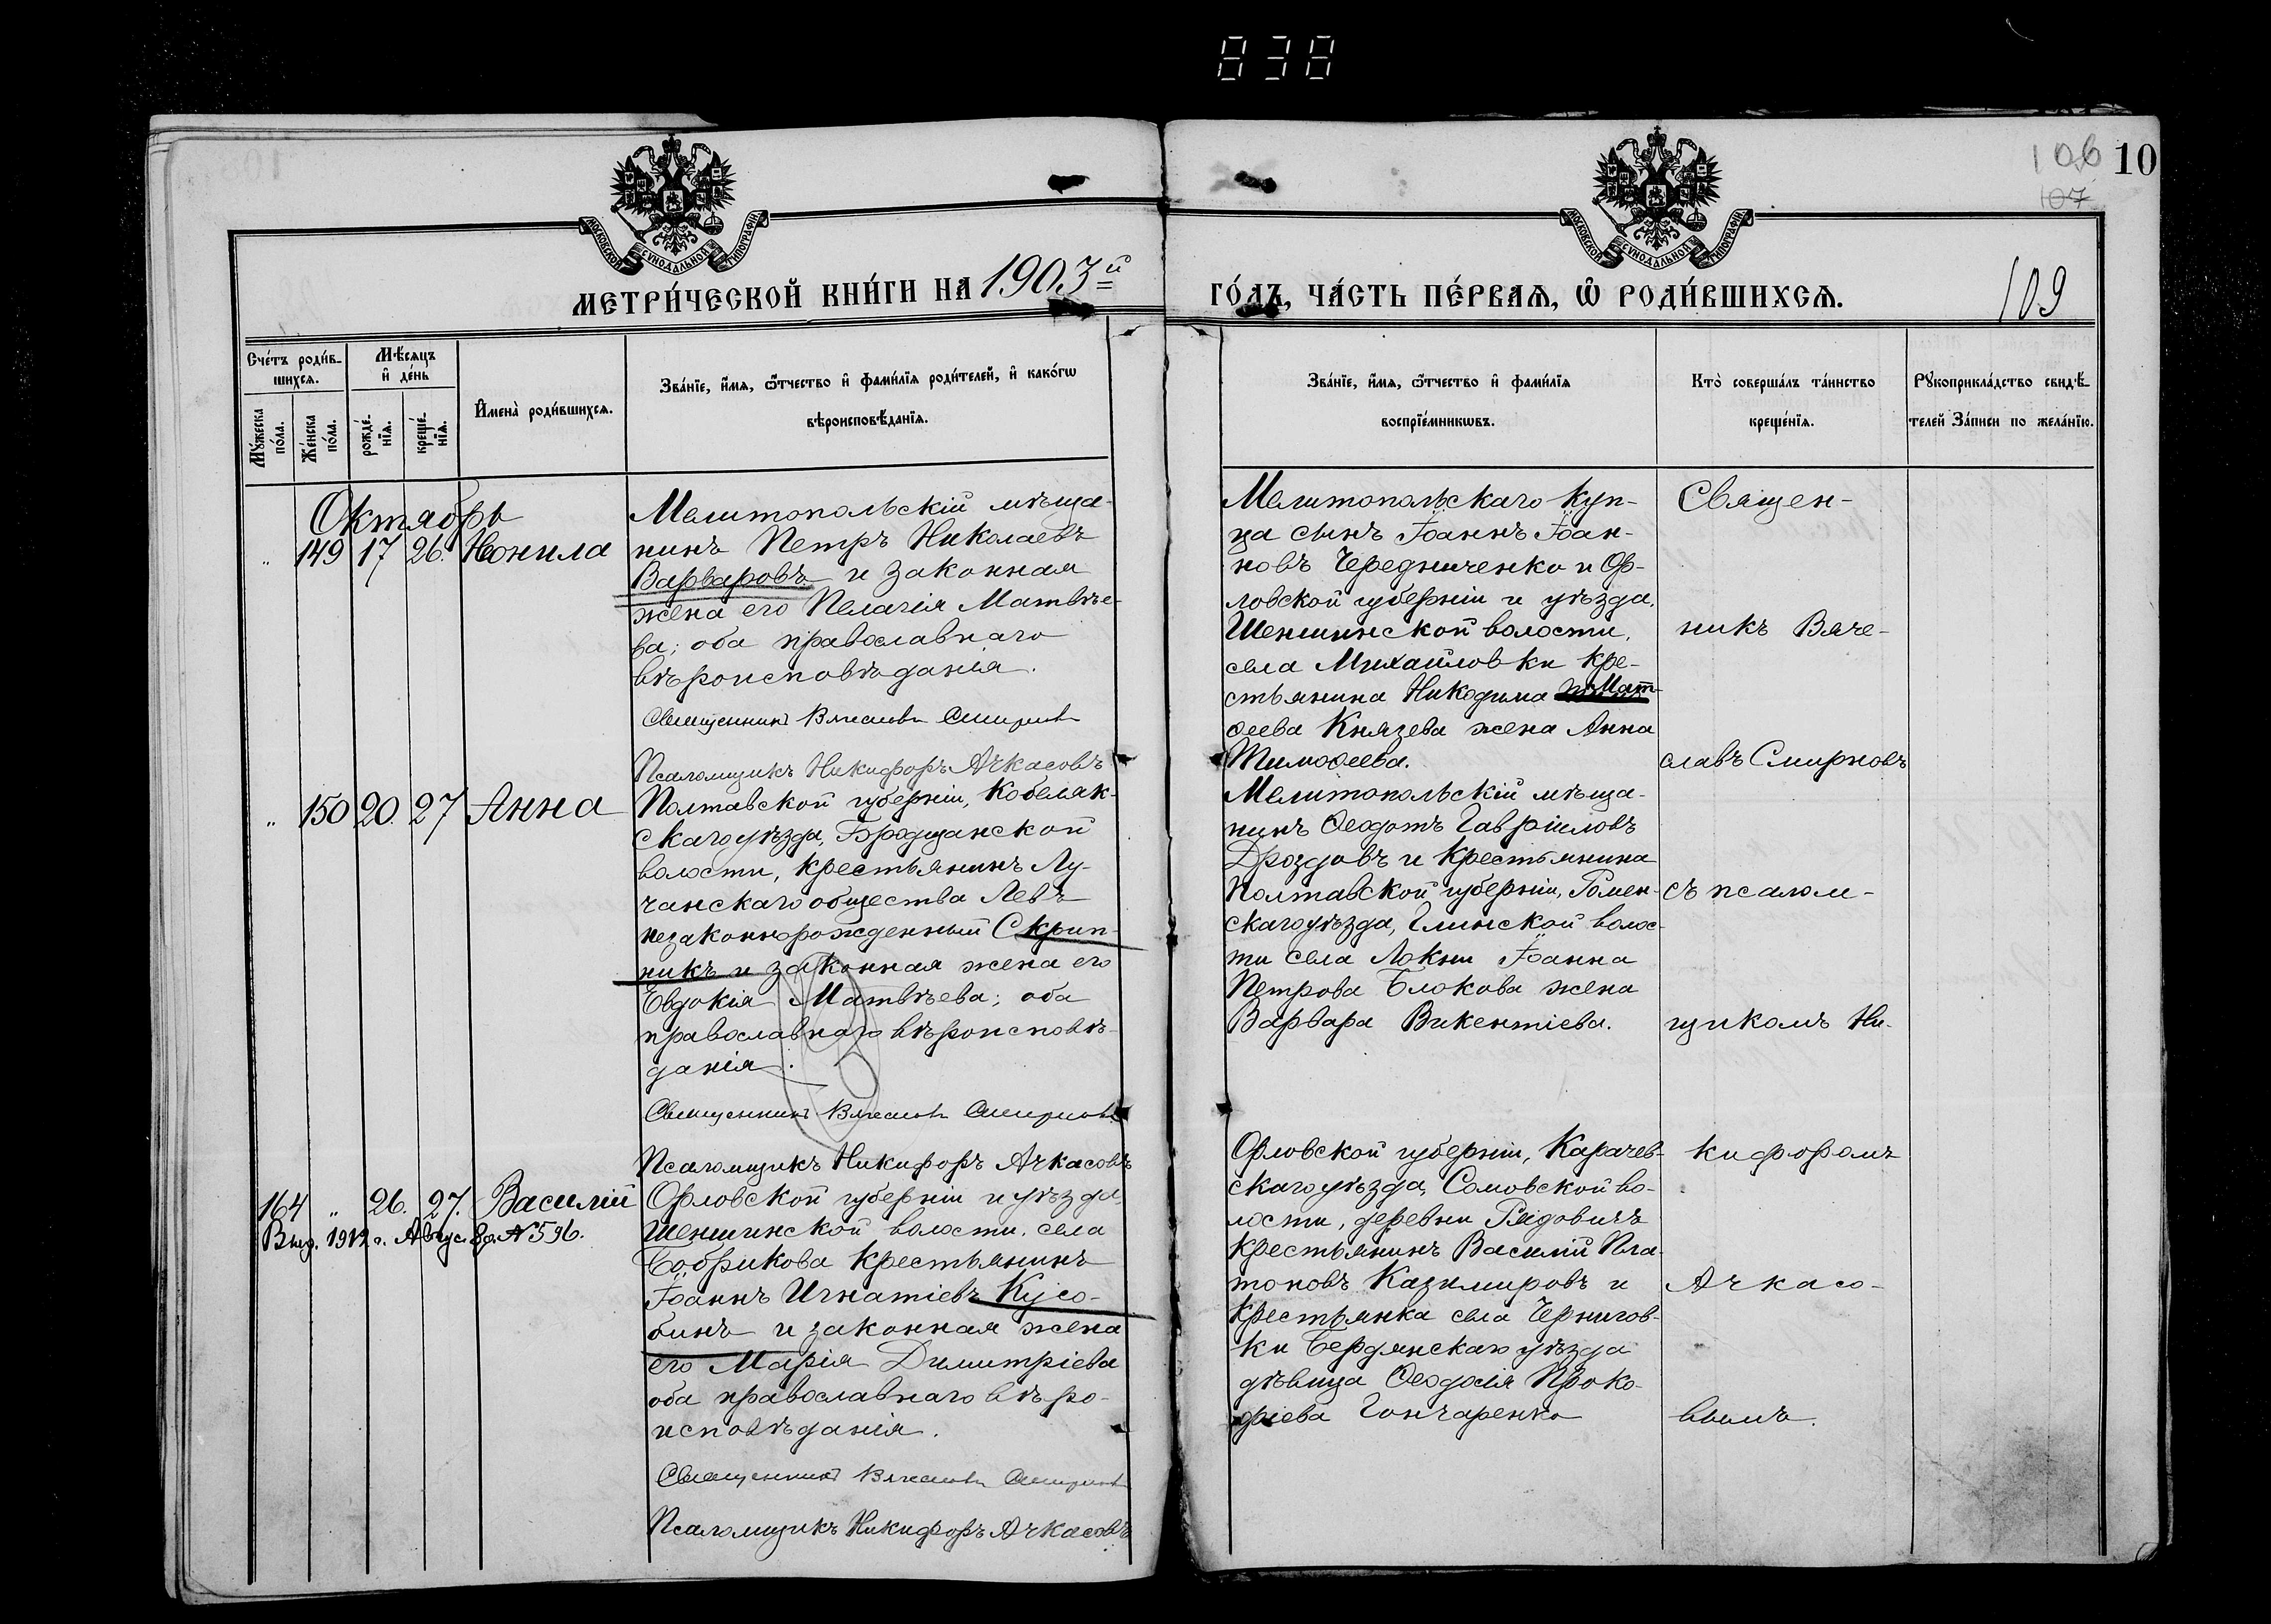 838
106
10
107
109
МОСКОВСКОЙ СѴНОДАЛЬНОЙ ТИПОГРАФІИ
МОСКОВСКОЙ СѴНОДАЛЬНОЙ ТИПОГРАФІИ
МЕТРИ́ЧЕСКОЙ КНИ́ГИ НА 1903й
ГО́ДЪ, ЧА́СТЬ ПЕ́РВАѦ, Ѡ҆ РОДИ́ВШИХСѦ.
Сче́тъ роди́в-
шихсѧ.
Мꙋ́жеска по́ла.
Же́нска по́ла.
Мѣ́сѧцъ
и҆ де́нь
рожде́-
нїѧ.
креще́-
нїѧ.
И҆мена̀ роди́вшихсѧ.
Зва́нїе, и҆́мѧ, ѻ҆́тчество и҆ фами́лїѧ роди́телей, и҆ како́гѡ
вѣроисповѣ́данїѧ.
Зва́нїе, и҆́мѧ, ѻ҆́тчество и҆ фами́лїѧ
воспрїе́мникѡвъ.
Кто̀ соверша́лъ та́инство
креще́нїѧ.
Рꙋкоприкла́дство свидѣ́-
телей За́писи по жела́нїю.
Октябрь
" 149 17 26. Неонила
Мелитопольскій мѣща-
нинъ Петръ Николаевъ
Варваровъ и законная
жена его Пелагія Матвѣе-
ва; оба православнаго
вѣроисповѣданія.
Священникъ Вячеславъ Смирновъ
Псаломщикъ Никифоръ Ачкасовъ
Мелитопольскаго куп-
ца сынъ Іоаннъ Іоан-
новъ Чередниченко и Ор-
ловской губерніи и уѣзда,
Шеншинской волости,
села Михайловки кре-
стьянина Никодима Мат-
ѳеева Князева жена Анна
Тимоѳеева.
Священ-
никъ Вяче-
славъ Смирновъ
" 150 20. 27 Анна
Полтавской губерніи, Кобеляк-
скаго уѣзда, Бродщанской
волости, крестьянинъ Лу-
чанскаго общества Левъ
незаконнорожденный Скрип-
никъ и законная жена его
Евдокія Матвѣева; оба
православнаго вѣроисповѣ-
данія.
Священникъ Вячеславъ Смирновъ
Псаломщикъ Никифоръ Ачкасовъ
Мелитопольскій мѣща-
нинъ Ѳеодотъ Гавріиловъ
Дроздовъ и крестьянина
Полтавской губерніи, Ромен-
скаго уѣзда, Глинской волос-
ти села Локни Іоанна
Петрова Блокова жена
Варвара Викентіева.
съ псалом-
щикомъ Ни-
164 " 26. 27. Василій
Выд. 1912 г. Авгус. 8 д. № 596.
Орловской губерніи и уѣзда,
Шеншинской волости, села
Бобрикова крестьянинъ
Іоаннъ Игнатіевъ Кусо-
бинъ и законная жена
его Марія Димитріева
оба православнаго вѣро-
исповѣданія.
Священникъ Вячеславъ Смирновъ
Псаломщикъ Никифоръ Ачкасовъ
Орловской губерніи, Карачев-
скаго уѣзда, Сомовской во-
лости, деревни Рядовичъ
крестьянинъ Василій Пла-
тоновъ Казимировъ и
крестьянка села Чернигов-
ки Бердянскаго уѣзда
дѣвица Ѳеодосія Проко-
фіева Гончаренко
кифоромъ
Ачкасо-
вымъ.